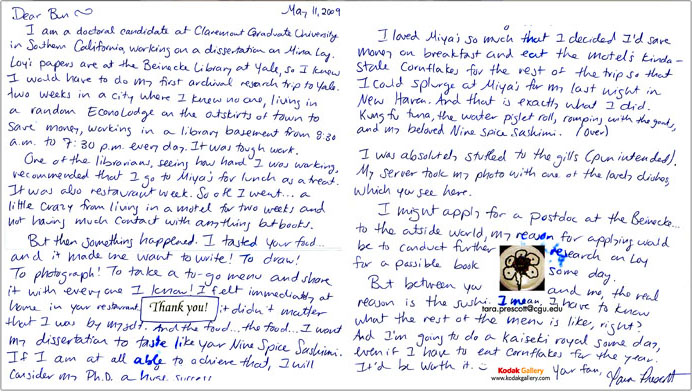 May 11, 2009
Dear Bun ~
I am a doctoral candidate at Claremont Graduate University
in Southern California, working on a dissertation on Mina Loy.
Loy's papers are at the Beinecke Library at Yale, so I knew
I would have to do my first archival research trip to Yale.
two weeks in a city where I knew no one, living in
a random EconoLodge on the outskirts of town to
save money, working in a library basement from 8:30
a.m. to 7:30 p.m. every day. It was tough work.
One of the librarians, seeing how hard I was working,
recommended that I go to Miya's for lunch as a treat.
It was also restaurant week. So off I went... a
little crazy from living in a motel for two weeks and
not having much contact with anything but books.
But then something happened. I tasted your food...
and it made me want to write! To draw!
To photograph! To take a to-go menu and share
it with everyone I know! I felt immediately at
home in your restaurant Thank you! it didn't matter
that I was by myself. And the food... the food... I want
my dissertation to taste like your Nine Spice Sashimi.
If I am at all able to achieve that, I will
consider my Ph.D. a huge success
I loved Miya's so much that I decided I'd save
money on breakfast and eat the motel's kinda-
stale Cornflakes for the rest of the trip so that
I could splurge at Miya's for my last night in
New Haven. And that is exactly what I did.
Kung fu tuna, the water piglet roll, romping with the goats,
and my beloved Nine Spice Sashimi. (over)
I was absolutely stuffed to the gills (pun intended).
My server took my photo with one of the lovely dishes,
which you see here.
I might apply for a postdoc at the Beinecke...
to the outside world, my reason for applying would
be to conduct further research on Loy
for a possible book some day.
But between you and me, the real
reason is the sushi. I mean, I have to know
tara.prescott@cgu.edu
what the rest of the menu is like, right?
And I'm going to do a kaiseki royal some day,
even if I have to eat cornflakes for the year.
It'd be worth it. Your fan, Tara Prescott
Kodak Gallery
www.kodakgallery.com